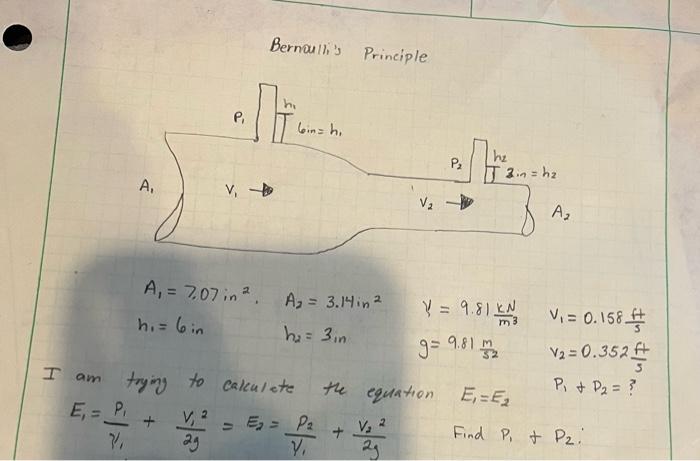 Bernoulli's Principle
P₁
h₁
6in = h₁
P₂
h₂
3in = h₂
A₁
V₁
V₂
A₂
A₁ = 7.07 in². A₂ = 3.14 in² γ = 9.81 kN/m³ V₁ = 0.158 ft/s
h₁ = 6 in h₂ = 3 in g = 9.81 m/s² V₂ = 0.352 ft/s
P₁ + P₂ = ?
I am trying to calculate the equation E₁ = E₂
E₁ = P₁/γ₁ + V₁²/2g = E₂ = P₂/γ₁ + V₂²/2g Find P₁ + P₂: